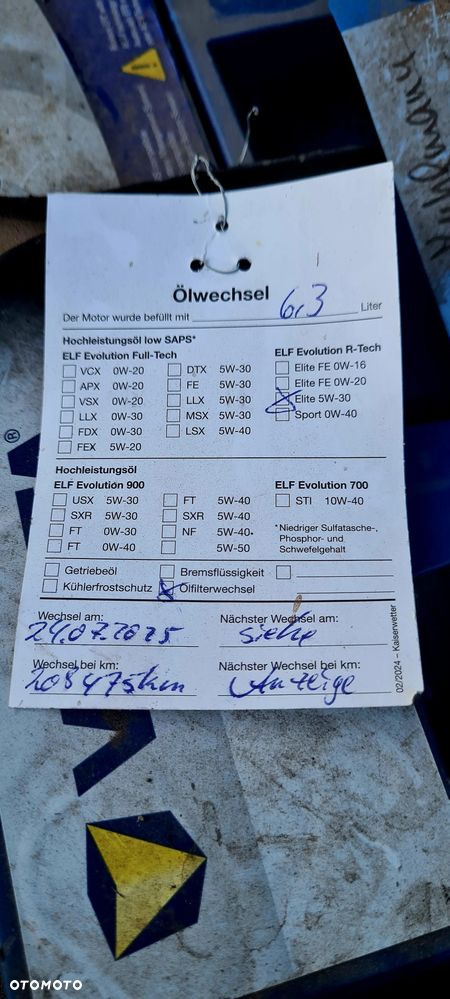 Kuhlmany
Ölwechsel
Der Motor wurde befüllt mit 6,3 Liter
Hochleistungsöl low SAPS*
ELF Evolution Full-Tech
VCX 0W-20
APX 0W-20
VSX 0W-20
LLX 0W-30
FDX 0W-30
FEX 5W-20
DTX 5W-30
FE 5W-30
LLX 5W-30
MSX 5W-30
LSX 5W-40
ELF Evolution R-Tech
Elite FE 0W-16
Elite FE 0W-20
Elite 5W-30
Sport 0W-40
Hochleistungsöl
ELF Evolution 900
USX 5W-30
SXR 5W-30
FT 0W-30
FT 0W-40
FT 5W-40
SXR 5W-40
NF 5W-40
5W-50
ELF Evolution 700
STI 10W-40
*Niedriger Sulfatasche-,
Phosphor- und
Schwefelgehalt
Getriebeöl
Kühlerfrostschutz
Bremsflüssigkeit
Ölfilterwechsel
Wechsel am:
24.07.2025
Nächster Wechsel am:
siehe
Wechsel bei km:
208475km
Nächster Wechsel bei km:
Anzeige
02/2024 – Kaiserwetter
OTOMOTO